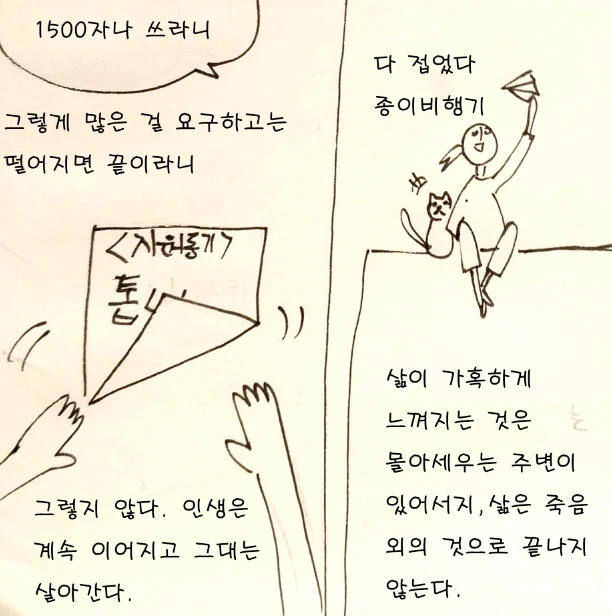 1500자나 쓰라니
그렇게 많은 걸 요구하고는
떨어지면 끝이라니
<지원동기>
톱
그렇지 않다. 인생은
계속 이어지고 그대는
살아간다.
다 접었다
종이비행기
삶이 가혹하게
느껴지는 것은
몰아세우는 주변이
있어서지,삶은 죽음
외의 것으로 끝나지
않는다.